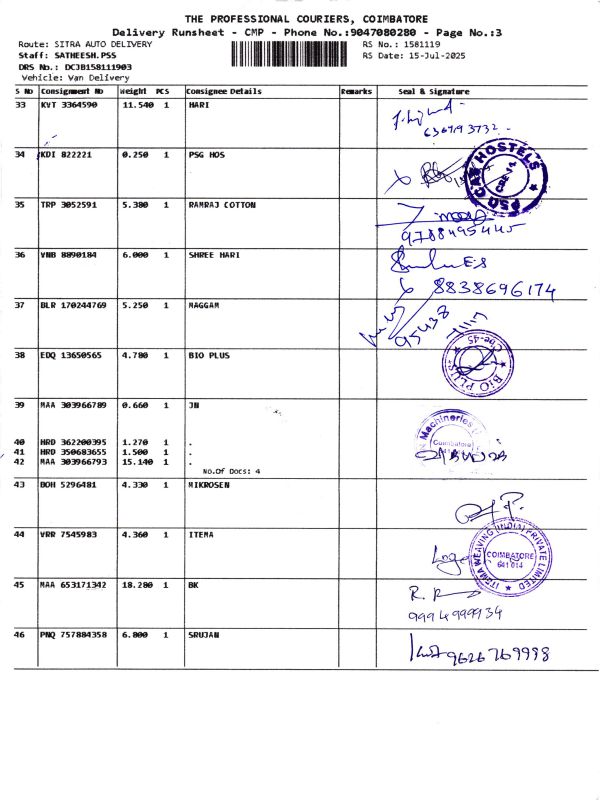 THE PROFESSIONAL COURIERS, COIMBATORE
Delivery Runsheet - CMP - Phone No.:9047080280 - Page No.:3
Route: SITRA AUTO DELIVERY RS No.: 1581119
Staff: SATHEESH.PSS RS Date: 15-Jul-2025
DRS No.: DCJB158111903
Vehicle: Van Delivery
S No Consignment No Weight PCS Consignee Details Remarks Seal & Signature
33 KVT 3364590 11.540 1 HARI
6369193732
34 KDI 822221 0.250 1 PSG HOS
PSG CAS HOSTELS CBE-14
35 TRP 3052591 5.380 1 RAMRAJ COTTON
9788495445
36 VNB 8890184 6.000 1 SHREE HARI
8838696174
37 BLR 170244769 5.250 1 MAGGAM
95438
38 EDQ 13650565 4.780 1 BIO PLUS
BIO PLUS Cbe-45
39 MAA 303966789 0.660 1 JN
Machineries
Coimbatore
40 HRD 362200395 1.270 1 .
41 HRD 350683655 1.500 1 .
42 MAA 303966793 15.140 1 .
No.Of Docs: 4
43 BOH 5296481 4.330 1 MIKROSEN
44 VRR 7545983 4.360 1 ITEMA
ITEMA WEAVING (INDIA) PRIVATE LIMITED
COIMBATORE
641 014
45 MAA 653171342 18.280 1 BK
9994999934
46 PNQ 757884358 6.800 1 SRUJAN
9626769998